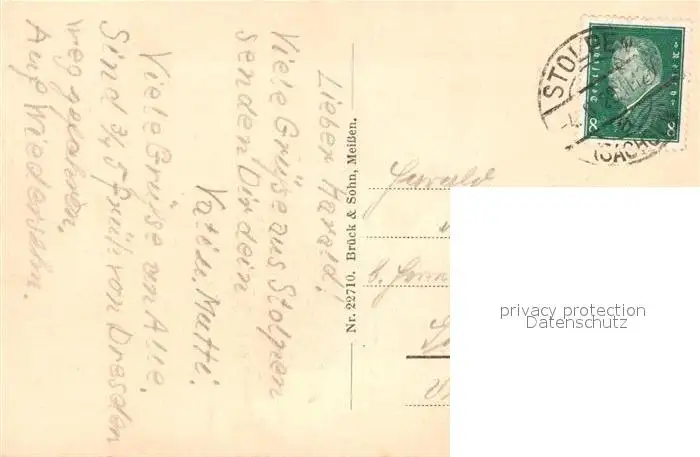 Lieber Harald!
Viele Grüße aus Stolpen
senden Dir dein
Vati u. Mutti.
Viele Grüße an Alle.
Sind 3/4 5 früh von Dresden
weggefahren.
Auf Wiedersehn.
Nr. 22710. Brück & Sohn, Meißen.
STOLPEN
(SACHS
Deutsches Reich
8 8
privacy protection
Datenschutz